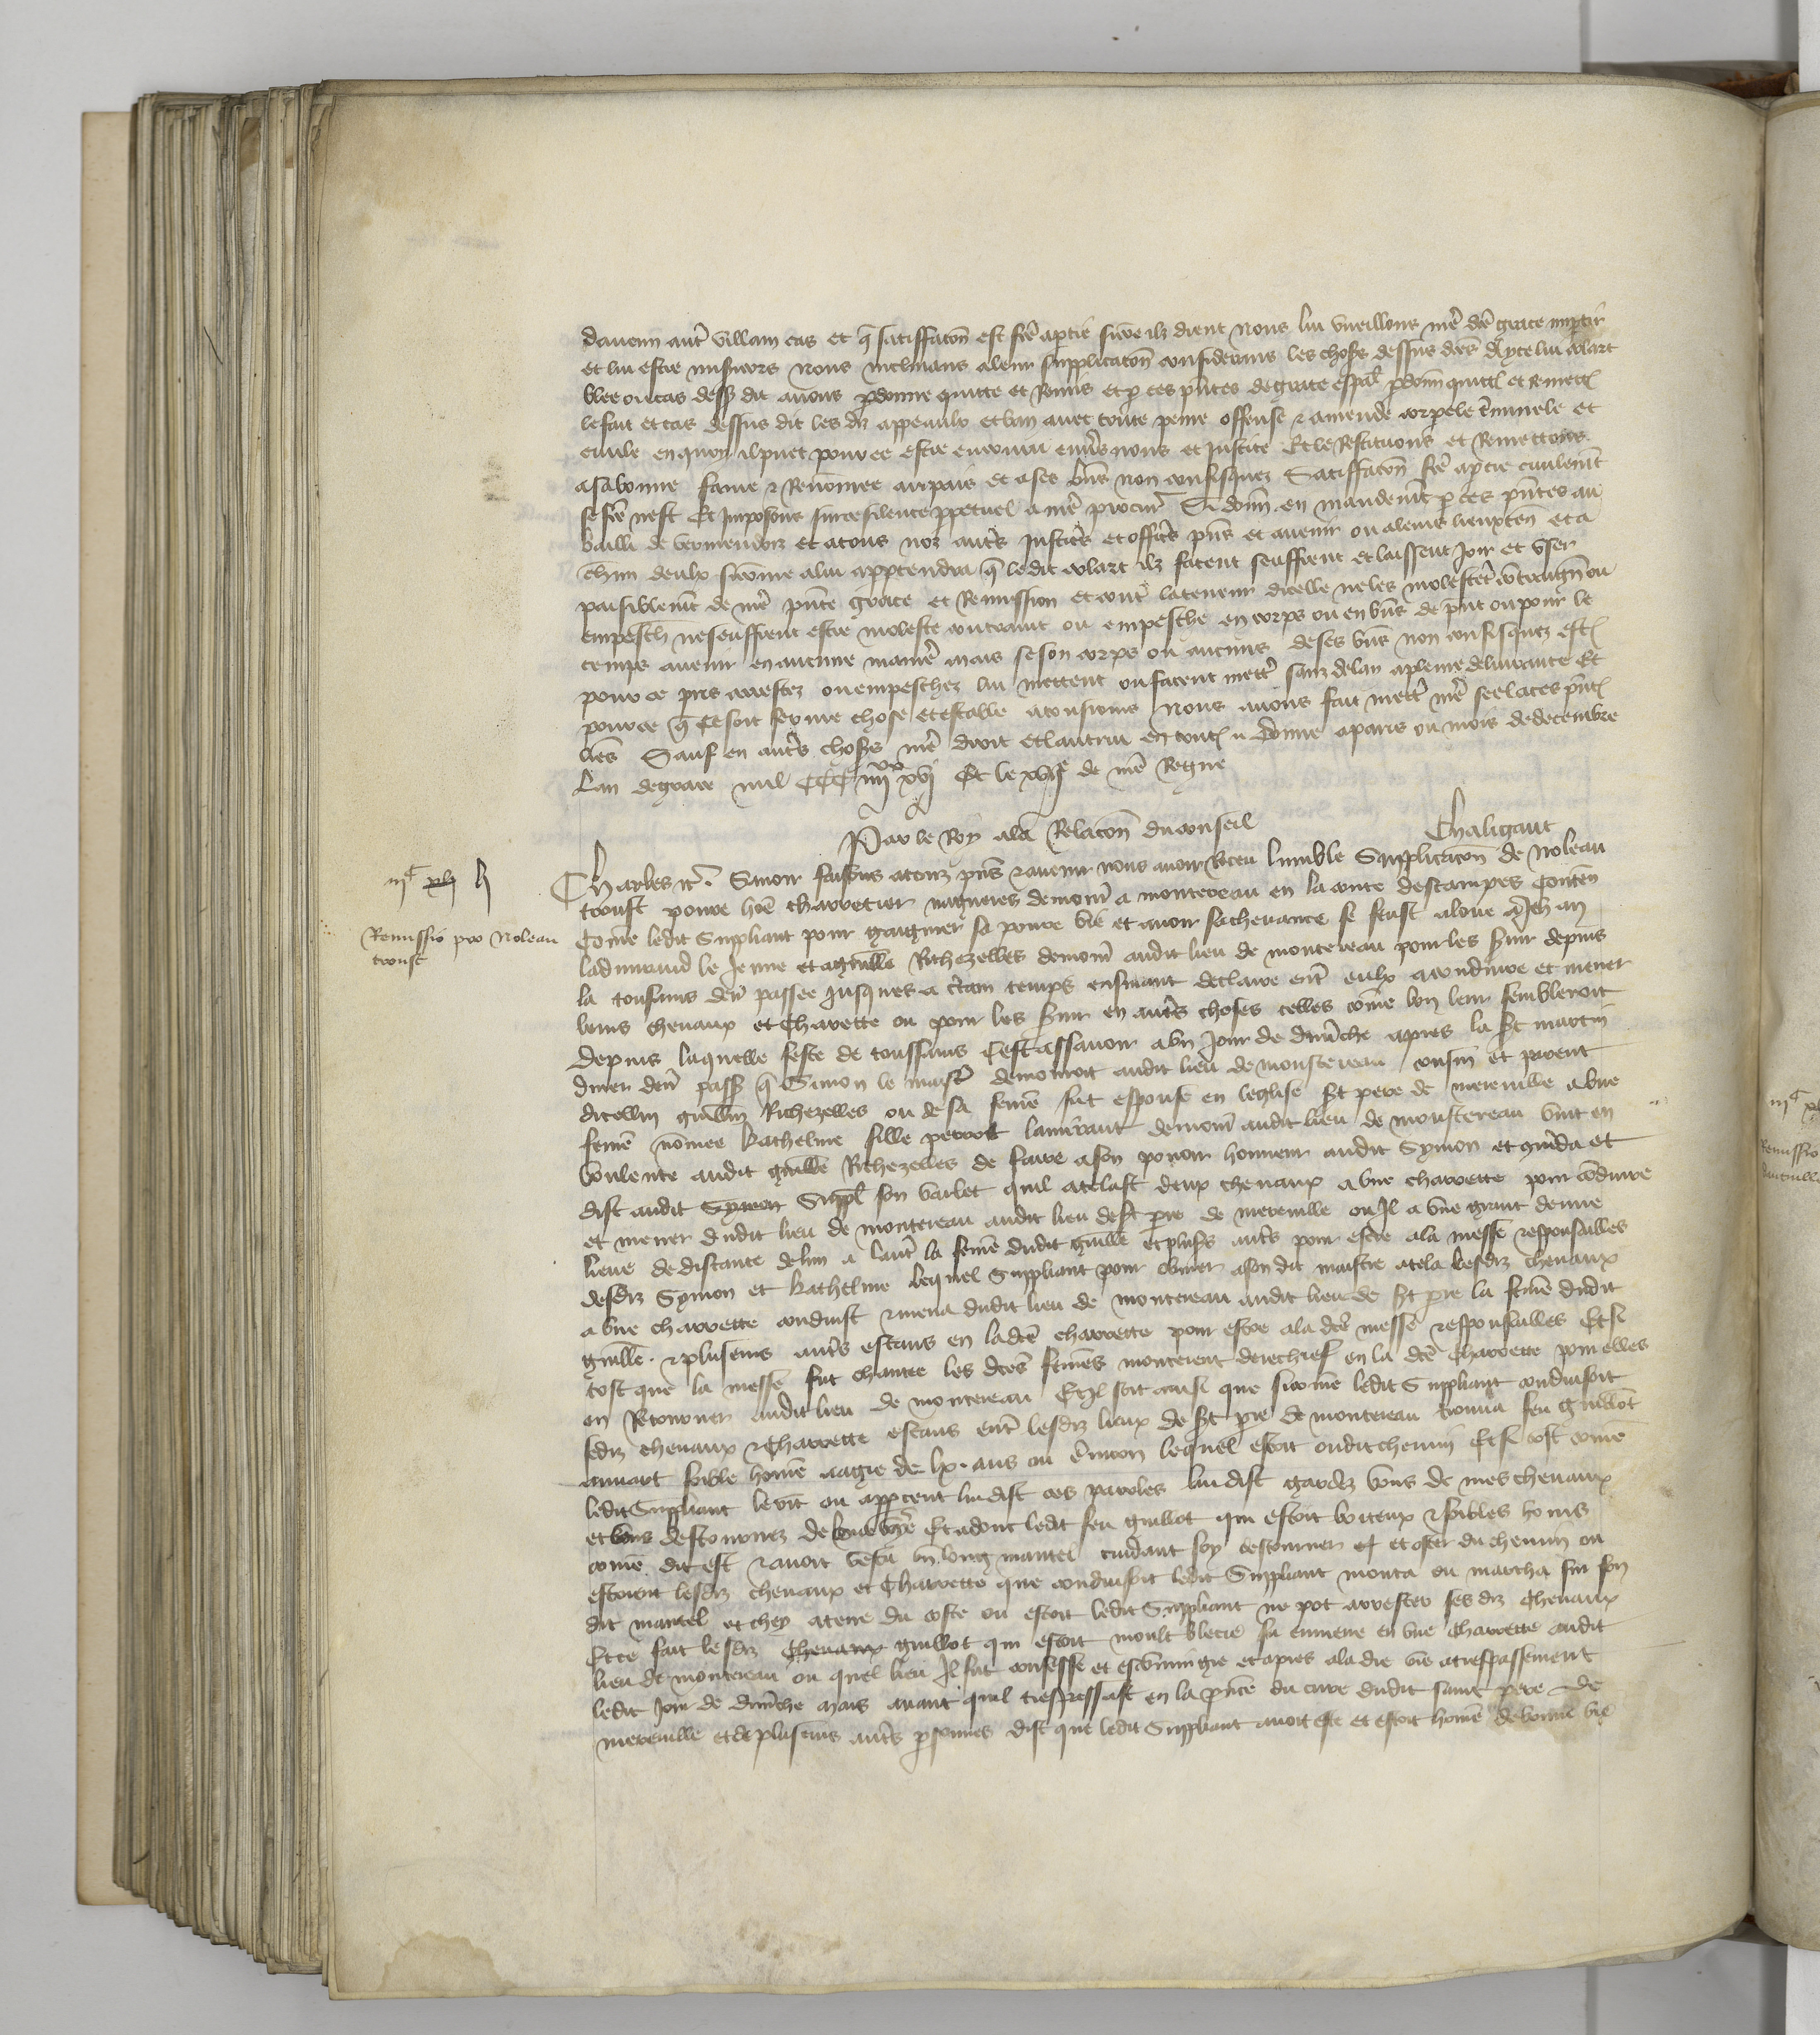 daucun autre villain cas et que satisfacon est fcē a partie sicōe ilz dient Nous lui vueillons nrē dcē grace impartir
et lui estre misericors Nous inclinans a leur supplicacōn considerans les choses dessus dcēs A ycelui colart
ou cas dessus dit avons pdonne quitte et Remis et p ces pñtes de grace espal pdonn quitt et remett
le fait et cas dessus dit les diz appeaulx et ban avec toute peine offense & amende corporele criminele et
civile en quoy il puet pour ce estre encouru envers nous et Justice Et le Restituons et Remettons
a sa bonne fame & Renommee au pais et a ses biens non confisquez Satisfacōn fcē a partie civilemēt
se fcē nest Et Imposons sur ce silence ppetuel a nrē procur̄ Si donn̄ en mandemt p ces pñtes au
bailli de vermendoiz et a tous noz autrēs Justiciēs et officiēs pñs et avenir ou a leurs lieuxten̄ et a
chun deulx sicomme a lui appartendra que le dit colart ilz facent seuffrent et laissent joir et user
paisiblemēt de nrē pñte grace et Remission et contre la teneur dicelle ne les molestent contraign̄ ou
empesch̄ ne seuffrent estre moleste contraint ou empeschie en corps ou en biens de pñt ou pour le
temps avenir en aucune maniere mais se son corps ou aucuns de ses biens non confisquez est
pour ce pris arrestez ou empeschez lui mettent ou facent mettre sanz delay a pleine delivrance Et
pour ce que ce soit ferme chose et estable a tousiours Nous avons fait mettre nrē seel a ces pñt
lrēs Sauf en autres choses nrē droit et lautrui en tout Donne a paris ou mois de decembre
Lan de grace mil CCC iiiixx xvj Et le xvije de nrē Regne
Par le Roy a la Relacōn du conseil Chaligaut
iijc xlj lj
Remissio pro Noleau
troust
Charles &c. Savoir faisons a touz pñs & avenir nous avoir receu lumble Supplicacōn de Noleau
troust povre hōe charretier nagueres demour̄ a montereau en la conte destampes Conten̄
Cōme ledit Suppliant pour gaigner sa povre vie et avoir sa chevance se feust aloue a Jehan
le Jeune et a guille Richezelles demour̄ audit lieu de montereau pour les servir depuis
la toussains dern̄ passee jusques a certain temps ensuivant declaire entre eulx a conduire et mener
leurs chevaux et Charrette ou pour les servir en autres choses telles cōme bon leur sembleroit
Depuis laquelle feste de toussains Cest assavoir a un Jour de dimenche apres la St martin
diver dern̄ passe que Simon le maistre demouroit audit lieu de monstereau cousin et parent
dicellui guillm̄ Richezelles ou de sa femme fut espouse en leglise St pere de mereville a une
femme nōmee Kathelme fille perrot demour̄ audit lieu de monstereau vint en
voulente audit guille Richezelles de faire a son povoir honneur audit Symon et et
dist audit Symon Suppl son varlet quil atelast deux chevaux a une charrette pour cōduire
et mener dudit lieu de montereau audit lieu de St pere de mereville ou Jl a une grant demie
lieue de distante de lun a lautre la femme dudit guille et pluss̄ autres pour estre a la messe & espousailles
desdiz Symon et Kathelme Lequel Suppliant pour obeir a son dit maistre atela lesdiz chevaux
a une charrette conduist & mena dudit lieu de montereau audit lieu de St pere la femme dudit
guille & plusieurs autres estans en ladcē charrette pour estre a la dcē messe & espousailles Et si
tost que la messe fut chantee les dcēs femmes monterent derechief en la dcē Charrette pour elles
en Retourner audit lieu de montereau Et Jl soit ainsi que sicomme ledit Suppliant conduisoit
sesdiz chevaux & Charrette estans entre lesdiz lieux de St pere de montereau trouva feu guillot
foible homme aagie de lx. ans ou environ lequel estoit oudit chemin Et si tost comme
ledit Suppliant le vit ou appceut lui dist ces paroles lui dist gardez vous de mes chevaux
et vous destournez de Et adont ledit feu guillot qui estoit boiteux & foibles homs
comme dit est & avoit vestu un long mantel cuidant soy destourner et oster du chemin ou
estoient lesdiz chevaux et Charrette que conduisoit ledit Suppliant monta ou marcha sur son
dit mantel et chey a terre du coste ou estoit ledit Suppliant ne pot arrester ses diz Chevaux
Et ce fait lesdiz Chevaux guillot qui estoit moult blecie fu emmene en une Charrette audit
lieu de montereau ou quel lieu Jl fut confesse et escōmingie et apres ala de vie a trespassement
ledit Jour de dimenche Mais avant quil trespassast en la pñce du cure dudit saint pere de
mereville et de plusieurs autres psonnes dist que ledit Suppliant avoit este et estoit homme de bonne vie